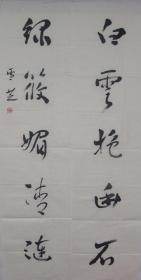 白雲抱幽石
綠筱媚清漣
雪芝